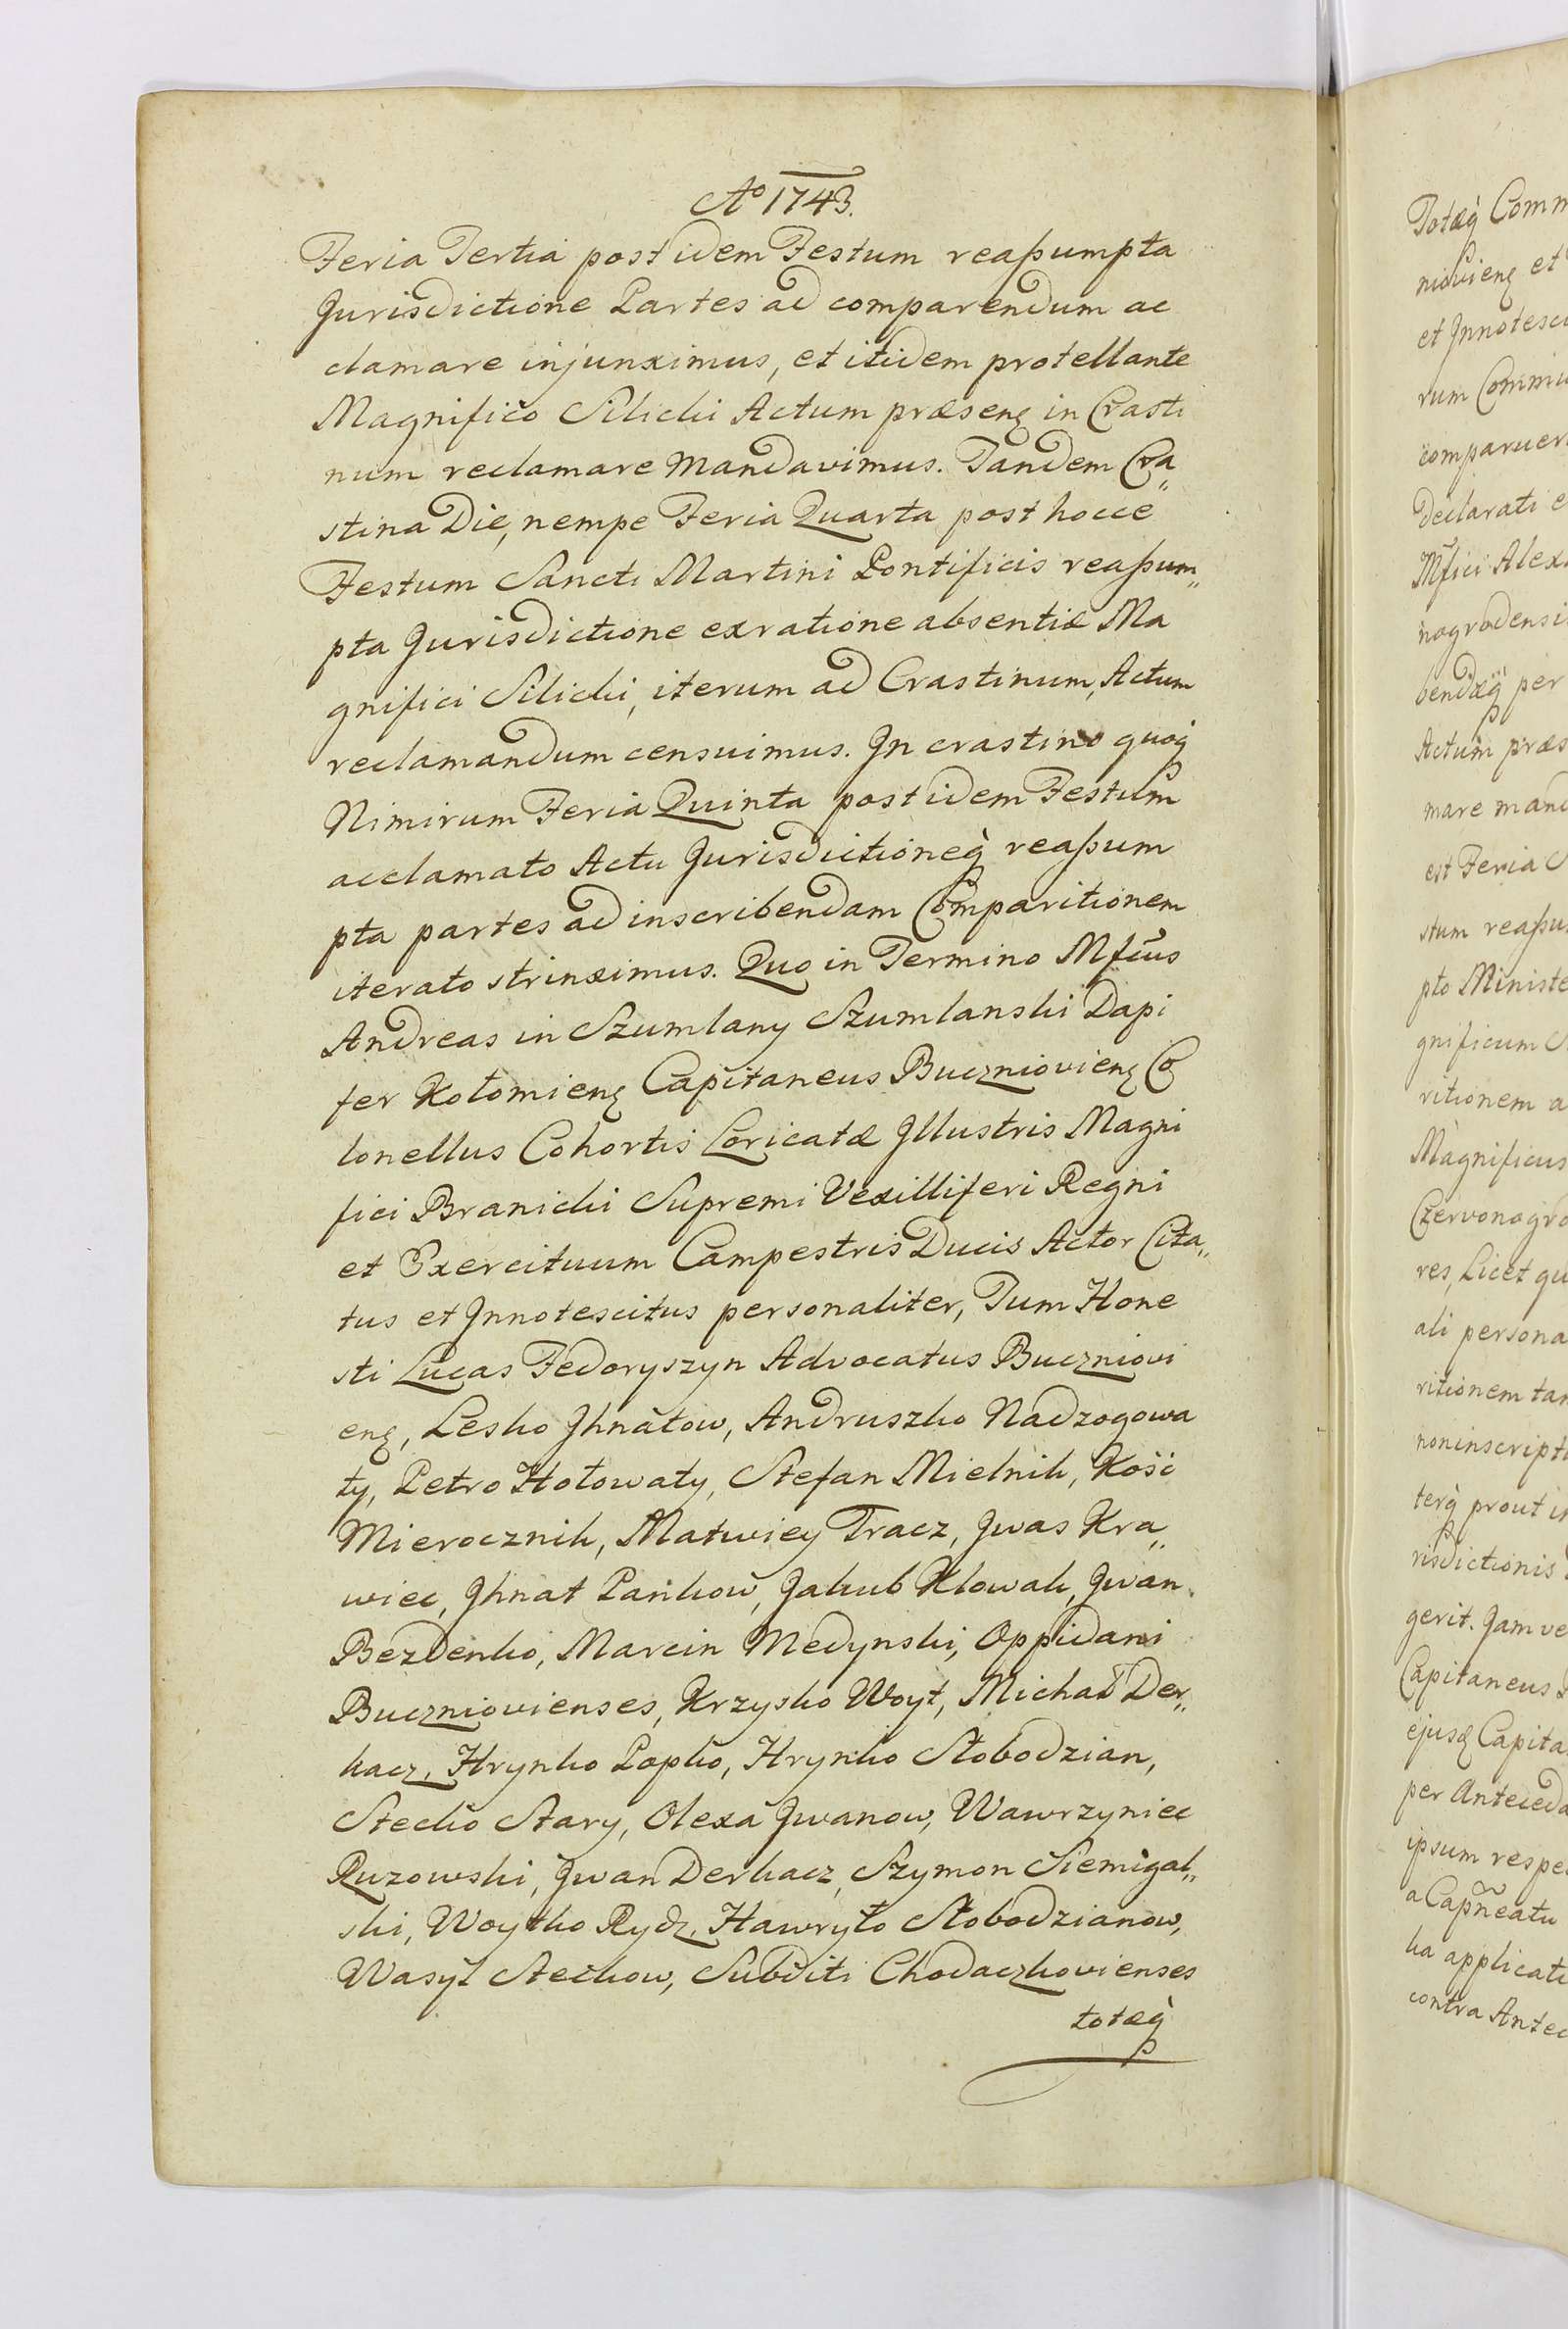 Ao 1743.
Feria Tertia post idem Festum reaßumpta
Jurisdictione Partes ad comparendum ac
clamare injunximus, et itidem protellante
Magnifico Silicki Actum præsenę in Crasti
num reclamare Mandavimus. Tandem Cra„
stina Die, nempe Feria Quarta post hocce
Festum Sancti Martini Pontificis reaßum„
pta Jurisdictione ex ratione absentiæ Ma
gnifici Silicki, iterum ad Crastinum, Actum
reclamandum censuimus. Jn crastino quoq̀
Nimirum Feria Quinta post idem Festum
acclamato Actu Jurisdictioneq̀ reaßum
pta partes ad inscribendam Comparitionem
iterato strinximus. Quo in Termino Mfcus
Andreas in Szumlany Szumlanski Dapi
fer Kołomienę Capitaneus Buczniovienę Co
lonellus Cohortis Loricatæ Jllustris Magni
fici Branicki Supremi Vexilliferi Regni
et Exercituum Campestris Ducis Actor Cita„
tus et Jnnotescitus personaliter, Tum Hone
sti Lucas Fedoryszyn Advocatus Buczniovi
enę, Lesko Jhnatow, Andruszko Nadzogowa
ty, Petro Hołowaty, Stefan Mielnik, Kość
Mierocznik, Matwiey Tracz, Jwas Kra„
wiec, Jhnat Pańkow, Jakub Klowak, Jwan
Bezdenko, Marcin Medynski, Oppidani
Buczniovienses, Krzysko Woyt, Michał Der„
kacz, Hrynko Popko, Hrynko Słobodzian,
Stecko Stary, Olexa Jwanow, Wawrzyniec
Ruzowski, Jwan Derkacz, Szymon Siemigal„
ski, Woytko Rydz, Hawryło Słobodzianow,
Wasyl Steckow, Subditi Chodaczkovienses
totæq̀
Totæq̀ Comm
niovienę et
et Jnnotesci
rum Commu
comparuer
declarati e
Mfici Alex
nogrodensi
bendæq̀ per
Actum præs
mare mand
est Feria S
stum reaßu
pto Ministe
gnificum S
ritionem a
Magnificus
Czervonogro
res, Licet qu
ali persona
ritionem tam
non inscripti
terq̀ prout in
risdictionis
gerit. Jam ve
Capitaneus
ejusq̀ Capita
per Anteceda
ipsum respe
a Capneatu
ka applicati
contra Antec